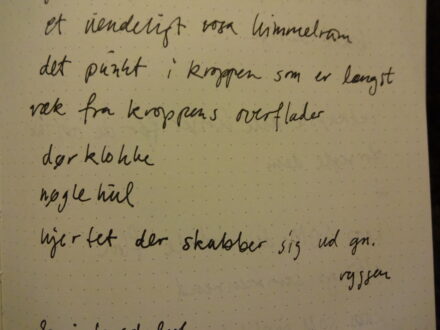 et uendeligt rosa himmelrum
det punkt i kroppen som er længst
væk fra kroppens overflader
dørklokke
nøglehul
hjertet der skubber sig ud gn.
ryggen